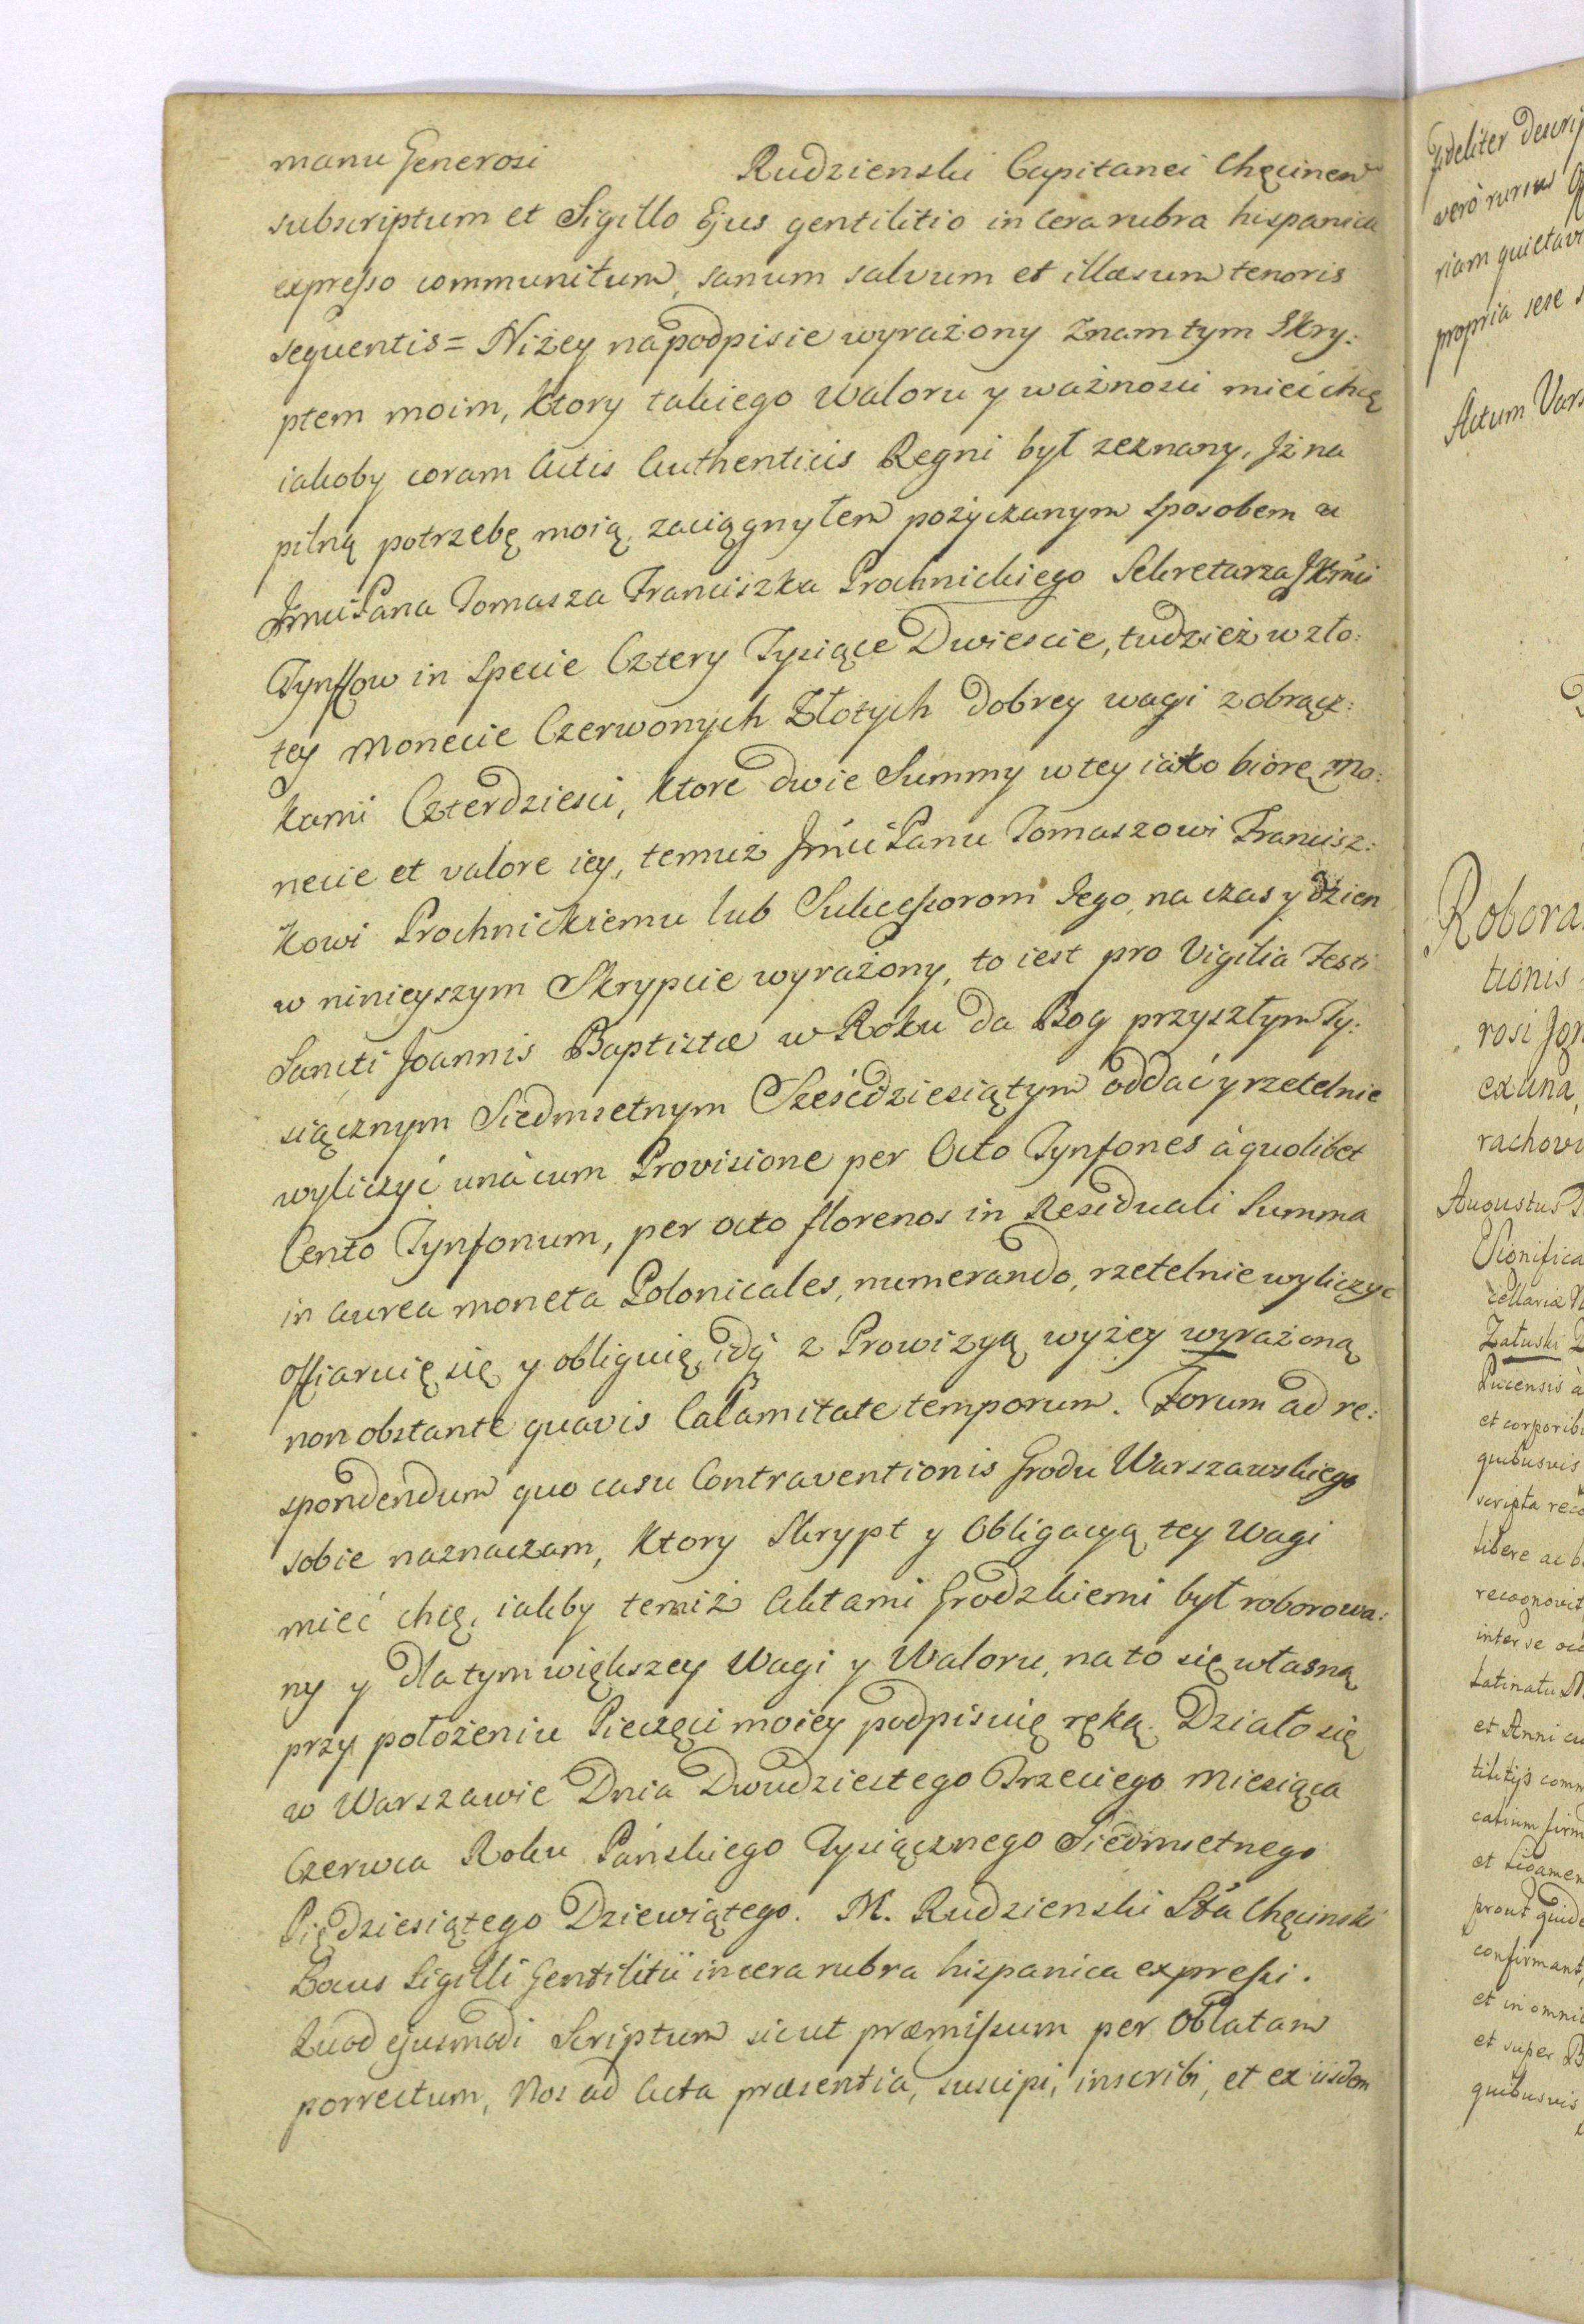 manu Generosi Rudzienski Capitanei Chęcinen
subscriptum et Sigillo Ejus gentilitio in Cera rubra hispanica
expresso communitum, sanum salvum et illæsum tenoris
sequentis = Niżey na podpisie wyrażony Znam tym Skry:
ptem moim, Ktory takiego Waloru y ważnosci mieć chcę
iakoby coram Actis Authenticis Regni był zeznany, Jż na
pilną potrzebę moią zaciągnyłem pożyczanym sposobem u
Jmci Pana Tomasza Franciszka Prochnickiego Sekretarza JKmci
Tynffow in Specie Cztery Tysiące Dwiescie, tudzież w zło:
tey Monecie Czerwonych Złotych dobrey wagi z obrącz:
kami Czterdziesci, Ktore dwie Summy w tey iako biorę Mo:
necie et valore iey, temuż Jmci Panu Tomaszowi Francisz:
kowi Prochnickiemu lub Sukcessorom Jego, na czas y dzien
w ninieyszym Skrypcie wyrażony, to iest pro Vigilia Festi
Sancti Joannis Baptistæ w Roku da Bog przyszłym Ty:
siącznym Siedmsetnym Sześćdziesiątym oddać y rzetelnie
wyliczyć unà cum Provisione per Octo Tynfones à quolibet
Cento Tynfonum, per octo florenos in Residuali Summa
in aurea moneta Polonicales, numerando, rzetelnie wyliczyc
offiaruię się y obliguię, idq̃ z Prowizyą wyżey wyrażoną
non obstante quavis Calamitate temporum. Forum ad re:
spondendum quo casu Contraventionis Grodu Warszawskiego
sobie naznaczam, Ktory Skrypt y Obligacyą tey Wagi
mieć chcę, iakby temiż Aktami Grodzkiemi był roborowa:
ny y dla tym większey Wagi y Waloru, na to się własną
przy położeniu Pieczęci moiey podpisuię ręką. Działo się
w Warszawie Dnia Dwudziestego Trzeciego Miesiąca
Czerwca Roku Pańskiego Tysiącznego Siedmsetnego
Piędziesiątego Dziewiątego. M. Rudzienski Sta Chęcinski
Locus Sigilli Gentilitii in cera rubra hispanica expressi.
Quod ejusmodi Scriptum sicut præmissum per Oblatam
porrectum, Nos ad Acta præsentia, suscipi, inscribi, et ex iisdem
fideliter descrip
vero rursus
riam quietavi
propria sese s
Actum Vars
Robora
tionis
rosi Jgn
ex una,
rachovi
Augustus
Significa
cellaria
Załuski
Lucensis à
et corporibu
quibusvis
scripta reco
libere ac b
recognovit
inter se
Latinatu
et Anni cu
tilitijs comm
firm
et ligamen
prout quide
confirmant,
et in omnib
et super B
quibusvis